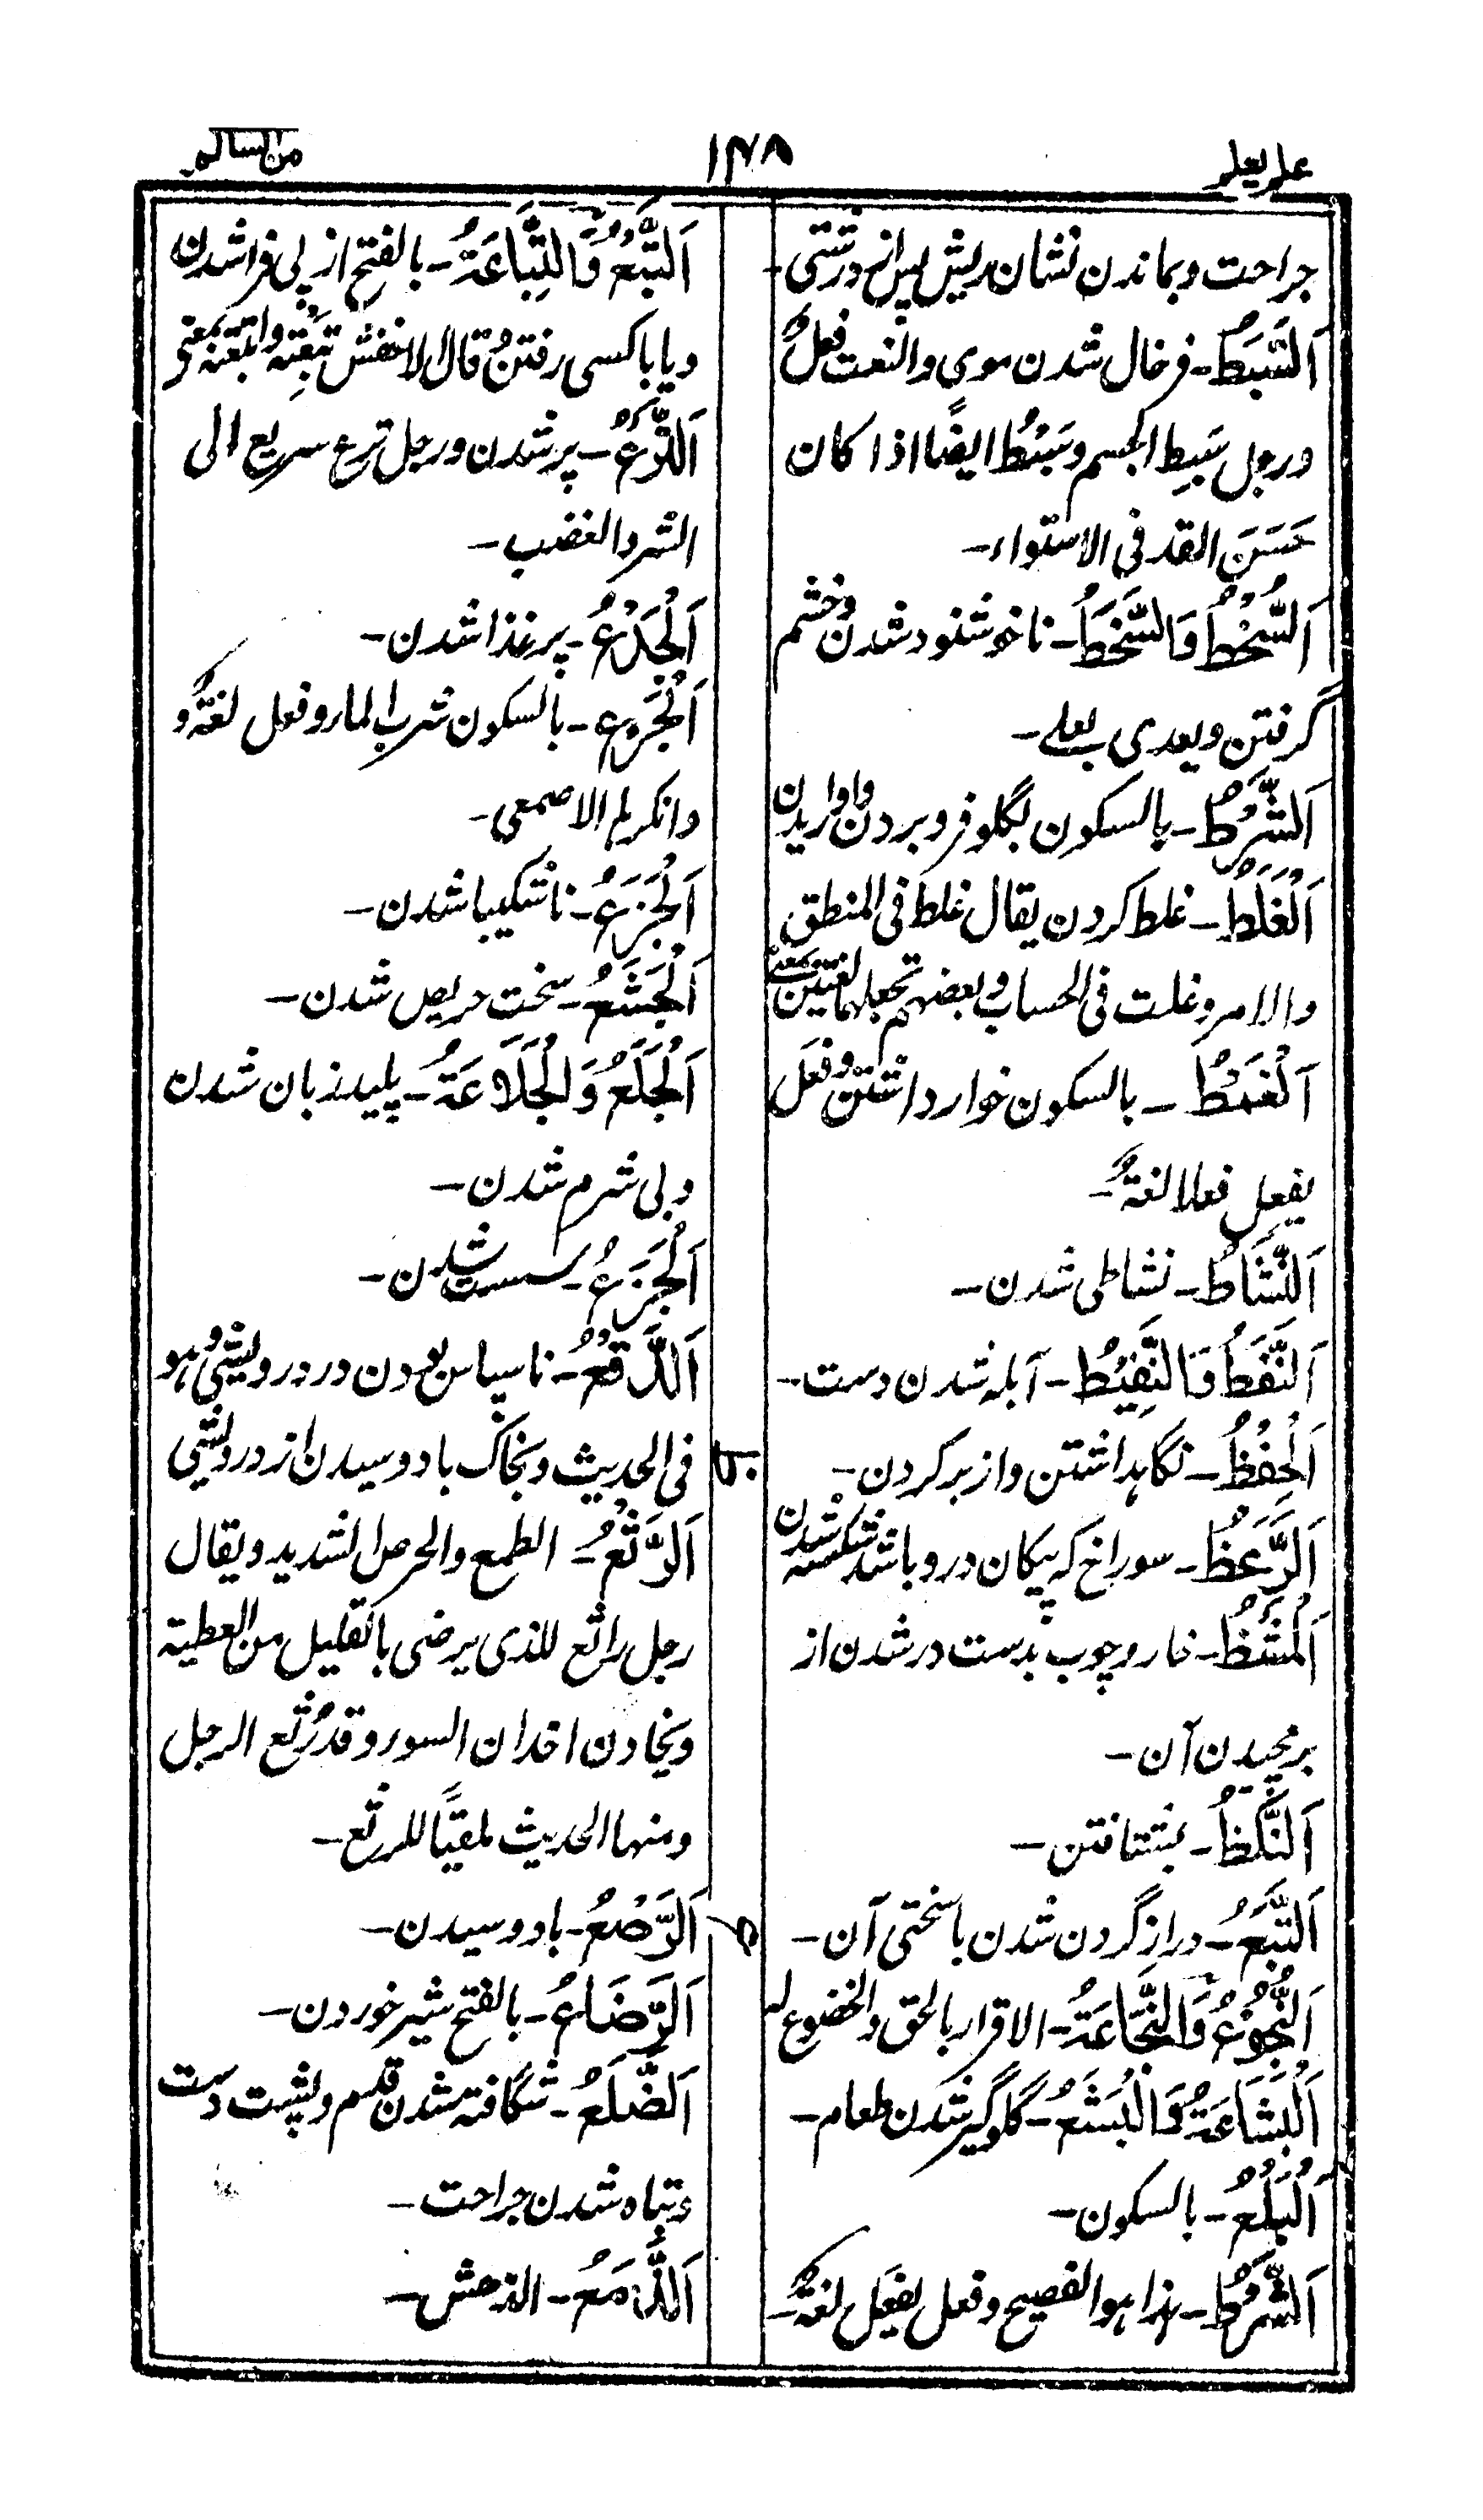 علم يعلم
۱۴۸
من السالم
جراحت وبماندن نشان ریش پس از درستی-
اَلسَّبَطُ- فرخال شدن موی والنعت فعل
ورجل سَبِط الجسم وسَبْطُ ایضًا اذا کان
حَسَنَ القد فی الاستواء-
اَلسُّخْطُ وَالسَّخَطُ- ناخوشنود شدن وخشم
گرفتن ویعدی بعلے-
اَلسَّرْطُ- بالسکون بگلو فرو بردن واواریدن
اَلْغَلَطُ- غلط کردن یقال غلط فی المنطق
والامر وغلت فی الحساب وبعضهم تجعلهما لغتین بمعنی
اَلْغَمْطُ- بالسکون خوار داشتن وفعَل
یفعِل فعلا لغةٌ-
اَلنَّشَاطُ- نشاطی شدن-
اَلنَّفَطُ وَالنَّفِيْطُ- آبله شدن دست-
اَلْحِفْظُ- نگاہداشتن واز بر کردن-
اَلرَّعَظُ- سوراخ که پیکان درو باشد شکسته شدن
اَلْمَشَظُ- خار وچوب بدست در شدن از
برمجیدن آن-
اَلنَّكَظُ- بشتافتن-
اَلتَّبَعُ- دراز گردن شدن با سختی آن-
اَلْبُخُوْعُ وَالْبَخَاعَةُ- الاقرار بالحق والخضوع له
اَلْبَشَاعَةُ وَالْبَشَعُ- گلوگیر شدن طعام-
اَلْبَلْعُ- بالسکون-
اَلسَّرْطُ- هذا هو الفصیح وفعل یفعَل لغةٌ-
اَلتَّبَعُ وَالتَّبَاعَةُ- بالفتح از پی فراشدن
ویا با کسی رفتن قال الاخفش تَبِعْتِه واتبعته بمعنی
اَلتَّرَعُ- پر شدن ورجل ترع سریع الی
الشر والغضب-
اَلْجَدَعُ- پر غذا شدن-
اَلْجَرْعُ- بالسکون شرب الماء وفعل لغةٌ و
وانکرها الاصمعی-
اَلْجَزَعُ- ناشکیبا شدن-
اَلْجَشَعُ- سخت حریص شدن-
اَلْجَلَعُ وَالْجَلَاعَةُ- پلید زبان شدن
وبی شرم شدن-
اَلْخَرَعُ- سست شدن-
اَلدَّقَعُ- ناسپاس بودن در درویشی وهو
فی الحدیث وبخاک بادوسیدن از درویشی
اَلرَّثَعُ- الطمع والحرص الشدید ویقال
رجل راثع للذی یرضی بالقلیل من العطیة
ویخادن اخدان السوء وقد رثع الرجل
ومنها الحدیث ملقیًا للرثع-
اَلرَّصَعُ- بادوسیدن-
اَلرَّضَاعُ- بالفتح شیر خوردن-
شگافته شدن قدم وپشت دست
وتباه شدن جراحت-
اَلزَّمَعُ- الدهش-